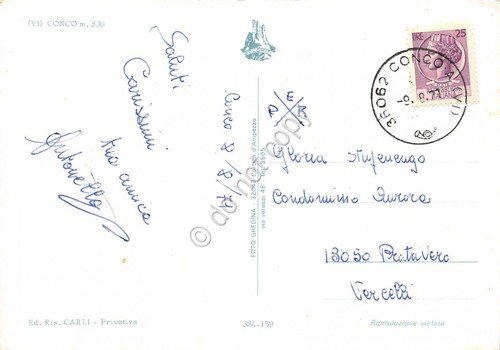 (VI) CONCO m. 830
Saluti
Carissimi
tua amica
Antonella
Conco 8/8/71
PER
FOTO GHEDINA - 32043 Cortina d'Ampezzo
via venezai 45 - Tel. 3605
do not copy
25
36062 CONCO (VI)
-9.8.71
Gloria Stufenengo
Condominio Aurora
13050 Pratavero
Vercelli
Ed. Ris. CARLI - Privativa
384.159
Riproduzione vietata